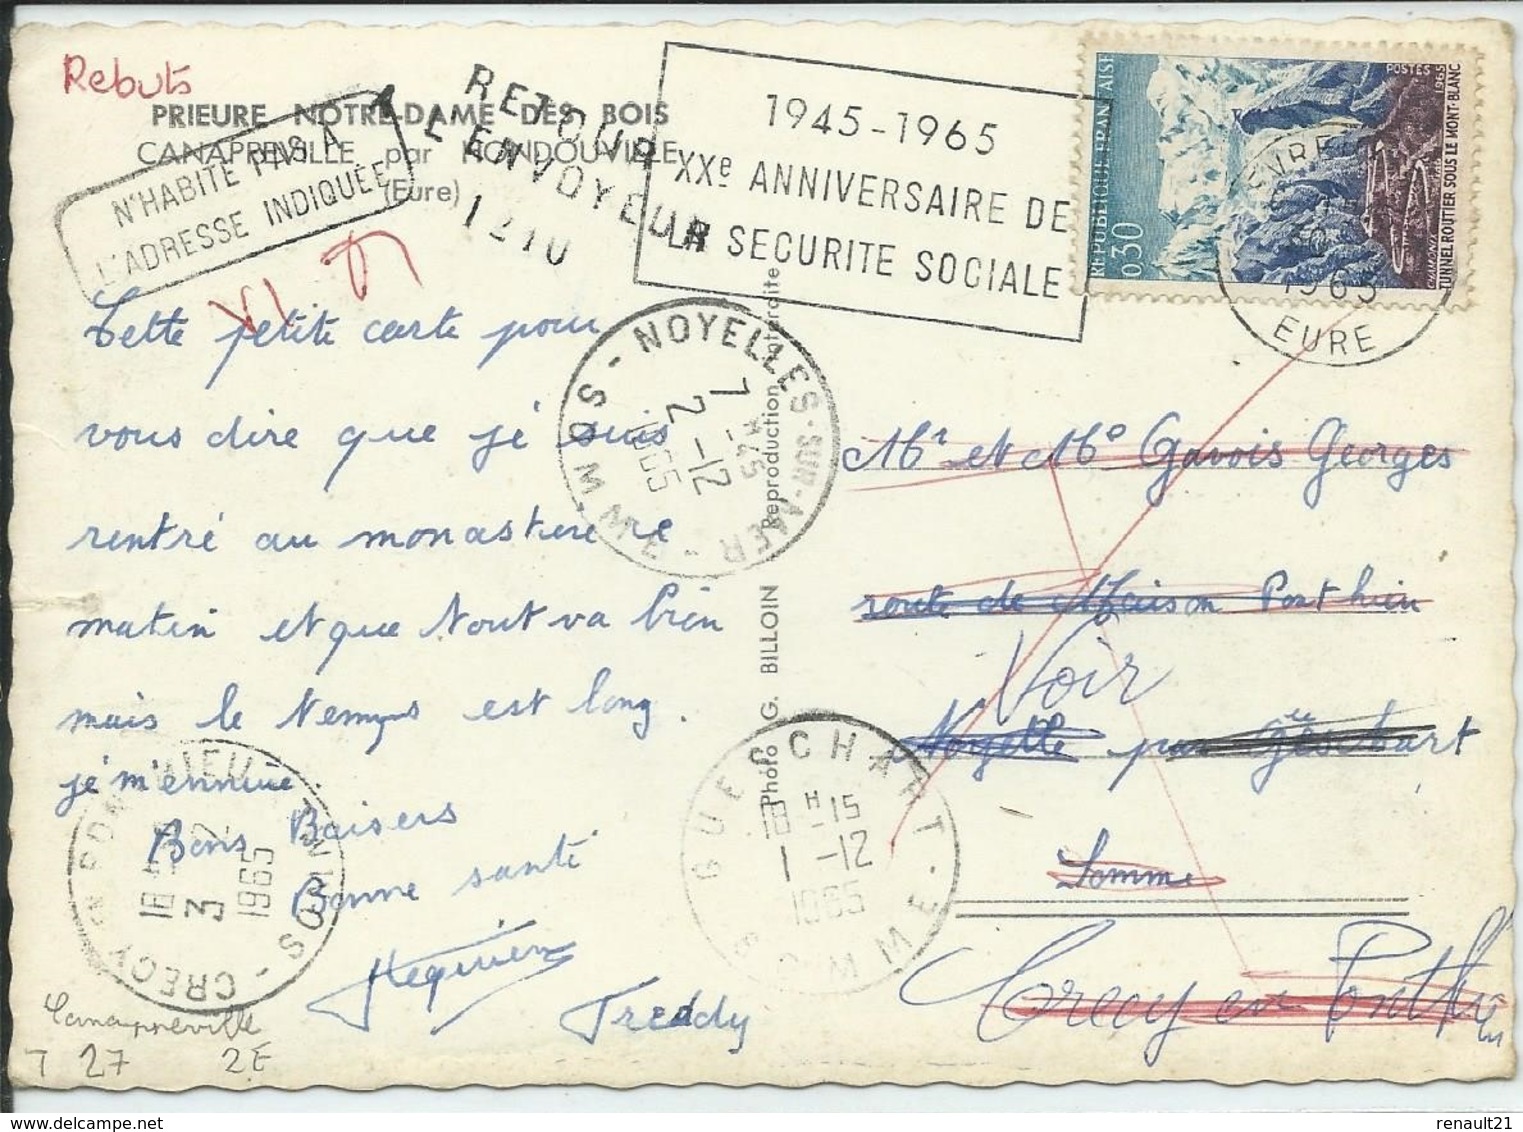 Rebuts
PRIEURE NOTRE-DAME DES BOIS
CANAPPEVILLE par HONDOUVILLE
(Eure)
N'HABITE PAS A
L'ADRESSE INDIQUÉE
RETOUR
A L'ENVOYEUR
1210
1945-1965
XXe ANNIVERSAIRE DE
LA SECURITE SOCIALE
REPUBLIQUE FRANÇAISE
0,30
POSTES 1965
TUNNEL ROUTIER SOUS LE MONT-BLANC
1965
EURE
Cette petite carte pour
vous dire que je suis
rentré au monastere re
matin et que tout va bien
mais le temps est long.
je m'ennuie.
Bons Baisers
Bonne santé
Freddy
NOYELLES-SUR-MER - SOMME
7 H 45
2 -12
1965
Photo G. BILLOIN Reproduction interdite
Mr et Me Gavois Georges
route de Maison Ponthieu
Voir
Noyelle par Gueschart
Somme
Crecy en Ponthieu
GUESCHART - SOMME
18 H 15
1 -12
1965
CRECY EN PONTHIEU - SOMME
18 H
3 12
1965
Canappeville
T 27 2E
renault21